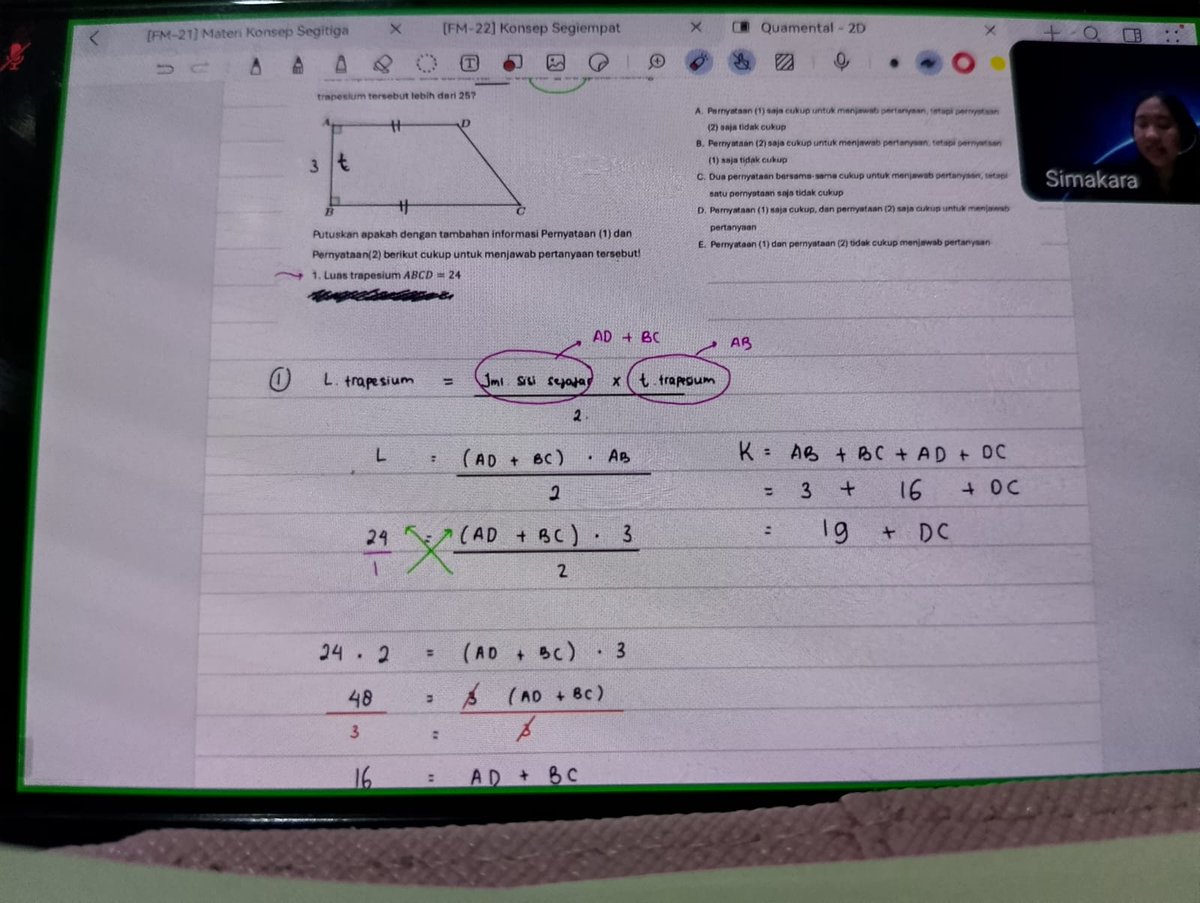 [FM-21] Materi Konsep Segitiga
[FM-22] Konsep Segiempat
Quamental - 2D
Simakara
trapesium tersebut lebih dari 25?
A
D
3
t
B
C
Putuskan apakah dengan tambahan informasi Pernyataan (1) dan
Pernyataan(2) berikut cukup untuk menjawab pertanyaan tersebut!
1. Luas trapesium ABCD = 24
A. Pernyataan (1) saja cukup untuk menjawab pertanyaan, tetapi pernyataan
(2) saja tidak cukup
B. Pernyataan (2) saja cukup untuk menjawab pertanyaan, tetapi pernyataan
(1) saja tidak cukup
C. Dua pernyataan bersama-sama cukup untuk menjawab pertanyaan, tetapi
satu pernyataan saja tidak cukup
D. Pernyataan (1) saja cukup, dan pernyataan (2) saja cukup untuk menjawab
pertanyaan
E. Pernyataan (1) dan pernyataan (2) tidak cukup menjawab pertanyaan
AD + BC
AB
1 L. trapesium = Jml sisi sejajar x t. trapesium
2.
L = (AD + BC) . AB
2
24 = (AD + BC) . 3
1
2
24 . 2 = (AD + BC) . 3
48 = 3 (AD + BC)
3 = 3
16 = AD + BC
K = AB + BC + AD + DC
= 3 + 16 + DC
= 19 + DC